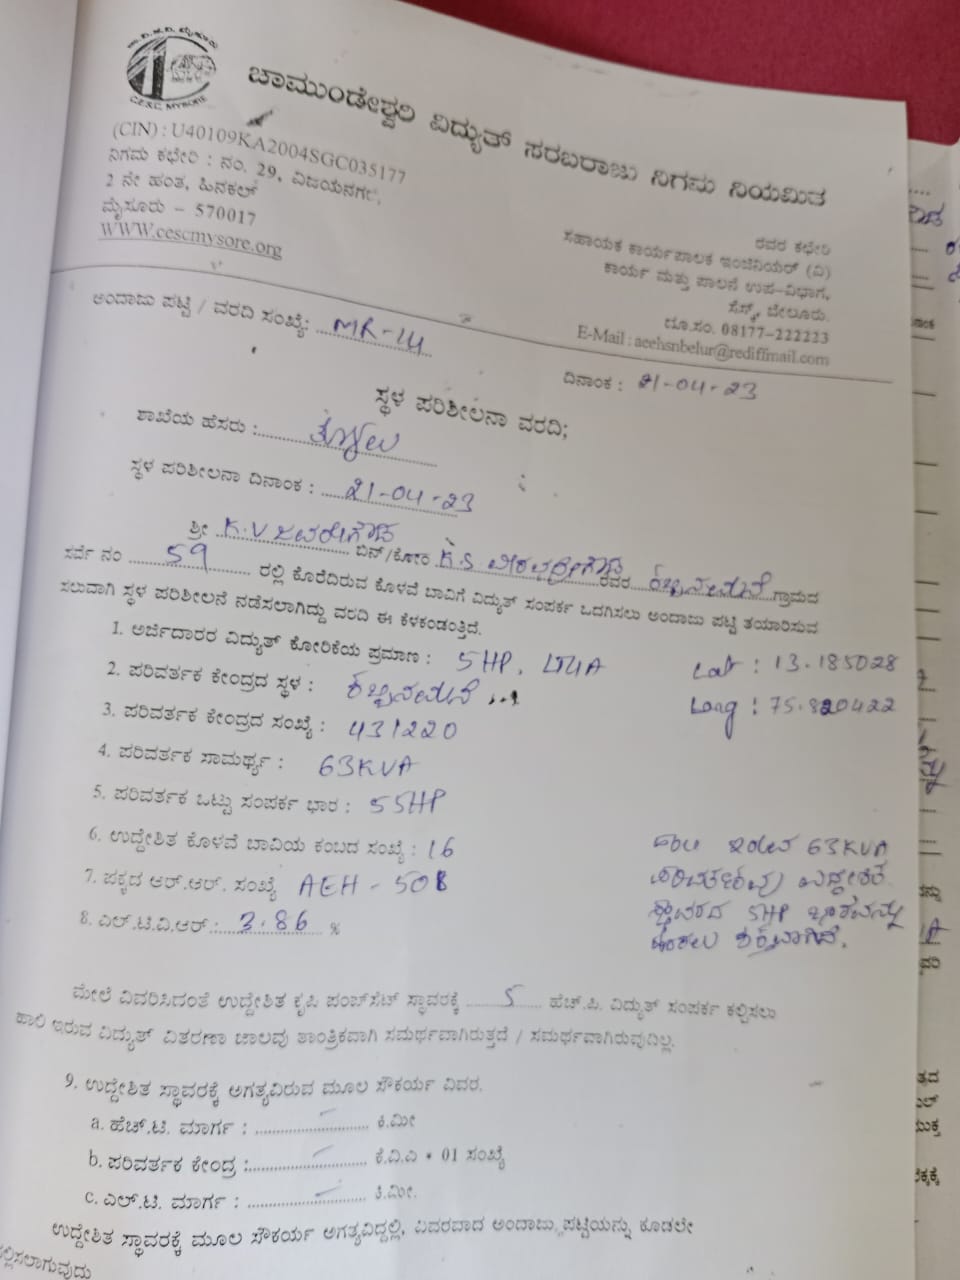 C.E.S.C. MYSORE
ಚಾಮುಂಡೇಶ್ವರಿ ವಿದ್ಯುತ್ ಸರಬರಾಜು ನಿಗಮ ನಿಯಮಿತ
(CIN) : U40109KA2004SGC035177
ನಿಗಮ ಕಛೇರಿ : ನಂ. 29, ವಿಜಯನಗರ,
2 ನೇ ಹಂತ, ಹಿನಕಲ್
ಮೈಸೂರು – 570017
WWW.cescmysore.org
ರವರ ಕಛೇರಿ
ಸಹಾಯಕ ಕಾರ್ಯಪಾಲಕ ಇಂಜಿನಿಯರ್ (ವಿ)
ಕಾರ್ಯ ಮತ್ತು ಪಾಲನೆ ಉಪ-ವಿಭಾಗ,
ಸೆಸ್ಕ್, ಬೇಲೂರು.
ದೂ.ಸಂ. 08177-222223
E-Mail : aeehsnbelur@rediffmail.com
ಅಂದಾಜು ಪಟ್ಟಿ / ವರದಿ ಸಂಖ್ಯೆ: MR-14
ದಿನಾಂಕ : 21-04-23
ಸ್ಥಳ ಪರಿಶೀಲನಾ ವರದಿ;
ಶಾಖೆಯ ಹೆಸರು :
ಸ್ಥಳ ಪರಿಶೀಲನಾ ದಿನಾಂಕ : 21-04-23
ಶ್ರೀ K.V ಜವರೇಗೌಡ ಬಿನ್/ಕೋಂ K.S ರವರ ಗ್ರಾಮದ
ಸರ್ವೆ ನಂ 59 ರಲ್ಲಿ ಕೊರೆದಿರುವ ಕೊಳವೆ ಬಾವಿಗೆ ವಿದ್ಯುತ್ ಸಂಪರ್ಕ ಒದಗಿಸಲು ಅಂದಾಜು ಪಟ್ಟಿ ತಯಾರಿಸುವ
ಸಲುವಾಗಿ ಸ್ಥಳ ಪರಿಶೀಲನೆ ನಡೆಸಲಾಗಿದ್ದು ವರದಿ ಈ ಕೆಳಕಂಡಂತ್ತಿದೆ.
1. ಅರ್ಜಿದಾರರ ವಿದ್ಯುತ್ ಕೋರಿಕೆಯ ಪ್ರಮಾಣ : 5HP,
Lat : 13.185028
2. ಪರಿವರ್ತಕ ಕೇಂದ್ರದ ಸ್ಥಳ :
Long : 75.820422
3. ಪರಿವರ್ತಕ ಕೇಂದ್ರದ ಸಂಖ್ಯೆ : 431220
4. ಪರಿವರ್ತಕ ಸಾಮರ್ಥ್ಯ : 63KVA
5. ಪರಿವರ್ತಕ ಒಟ್ಟು ಸಂಪರ್ಕ ಭಾರ : 55HP
6. ಉದ್ದೇಶಿತ ಕೊಳವೆ ಬಾವಿಯ ಕಂಬದ ಸಂಖ್ಯೆ : 16
7. ಪಕ್ಕದ ಆರ್.ಆರ್. ಸಂಖ್ಯೆ AEH - 508
8. ಎಲ್.ಟಿ.ವಿ.ಆರ್ : 3.86 %
ಹಾಲಿ ಇರುವ 63KVA
ಪರಿವರ್ತಕವು ಉದ್ದೇಶಿತ
ಸ್ಥಾವರದ 5HP ಭಾರವನ್ನು
ಹೊರಲು ಶಕ್ತವಾಗಿದೆ.
ಮೇಲೆ ವಿವರಿಸಿದಂತೆ ಉದ್ದೇಶಿತ ಕೃಷಿ ಪಂಪ್‌ಸೆಟ್ ಸ್ಥಾವರಕ್ಕೆ 5 ಹೆಚ್.ಪಿ. ವಿದ್ಯುತ್ ಸಂಪರ್ಕ ಕಲ್ಪಿಸಲು
ಹಾಲಿ ಇರುವ ವಿದ್ಯುತ್ ವಿತರಣಾ ಜಾಲವು ತಾಂತ್ರಿಕವಾಗಿ ಸಮರ್ಥವಾಗಿರುತ್ತದೆ / ಸಮರ್ಥವಾಗಿರುವುದಿಲ್ಲ.
9. ಉದ್ದೇಶಿತ ಸ್ಥಾವರಕ್ಕೆ ಅಗತ್ಯವಿರುವ ಮೂಲ ಸೌಕರ್ಯ ವಿವರ.
a. ಹೆಚ್.ಟಿ. ಮಾರ್ಗ : ಕಿ.ಮೀ
b. ಪರಿವರ್ತಕ ಕೇಂದ್ರ : ಕೆ.ವಿ.ಎ * 01 ಸಂಖ್ಯೆ
c. ಎಲ್.ಟಿ ಮಾರ್ಗ : ಕಿ.ಮೀ.
ಉದ್ದೇಶಿತ ಸ್ಥಾವರಕ್ಕೆ ಮೂಲ ಸೌಕರ್ಯ ಅಗತ್ಯವಿದ್ದಲ್ಲಿ, ವಿವರವಾದ ಅಂದಾಜು ಪಟ್ಟಿಯನ್ನು ಕೂಡಲೇ
ಸಲ್ಲಿಸಲಾಗುವುದು